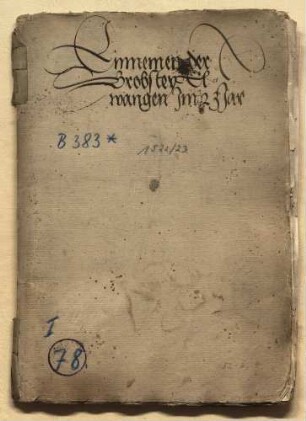 Einnemen der
Brobstey El-
wangen Im 2 Jar
B 383*
1522/23
I
78